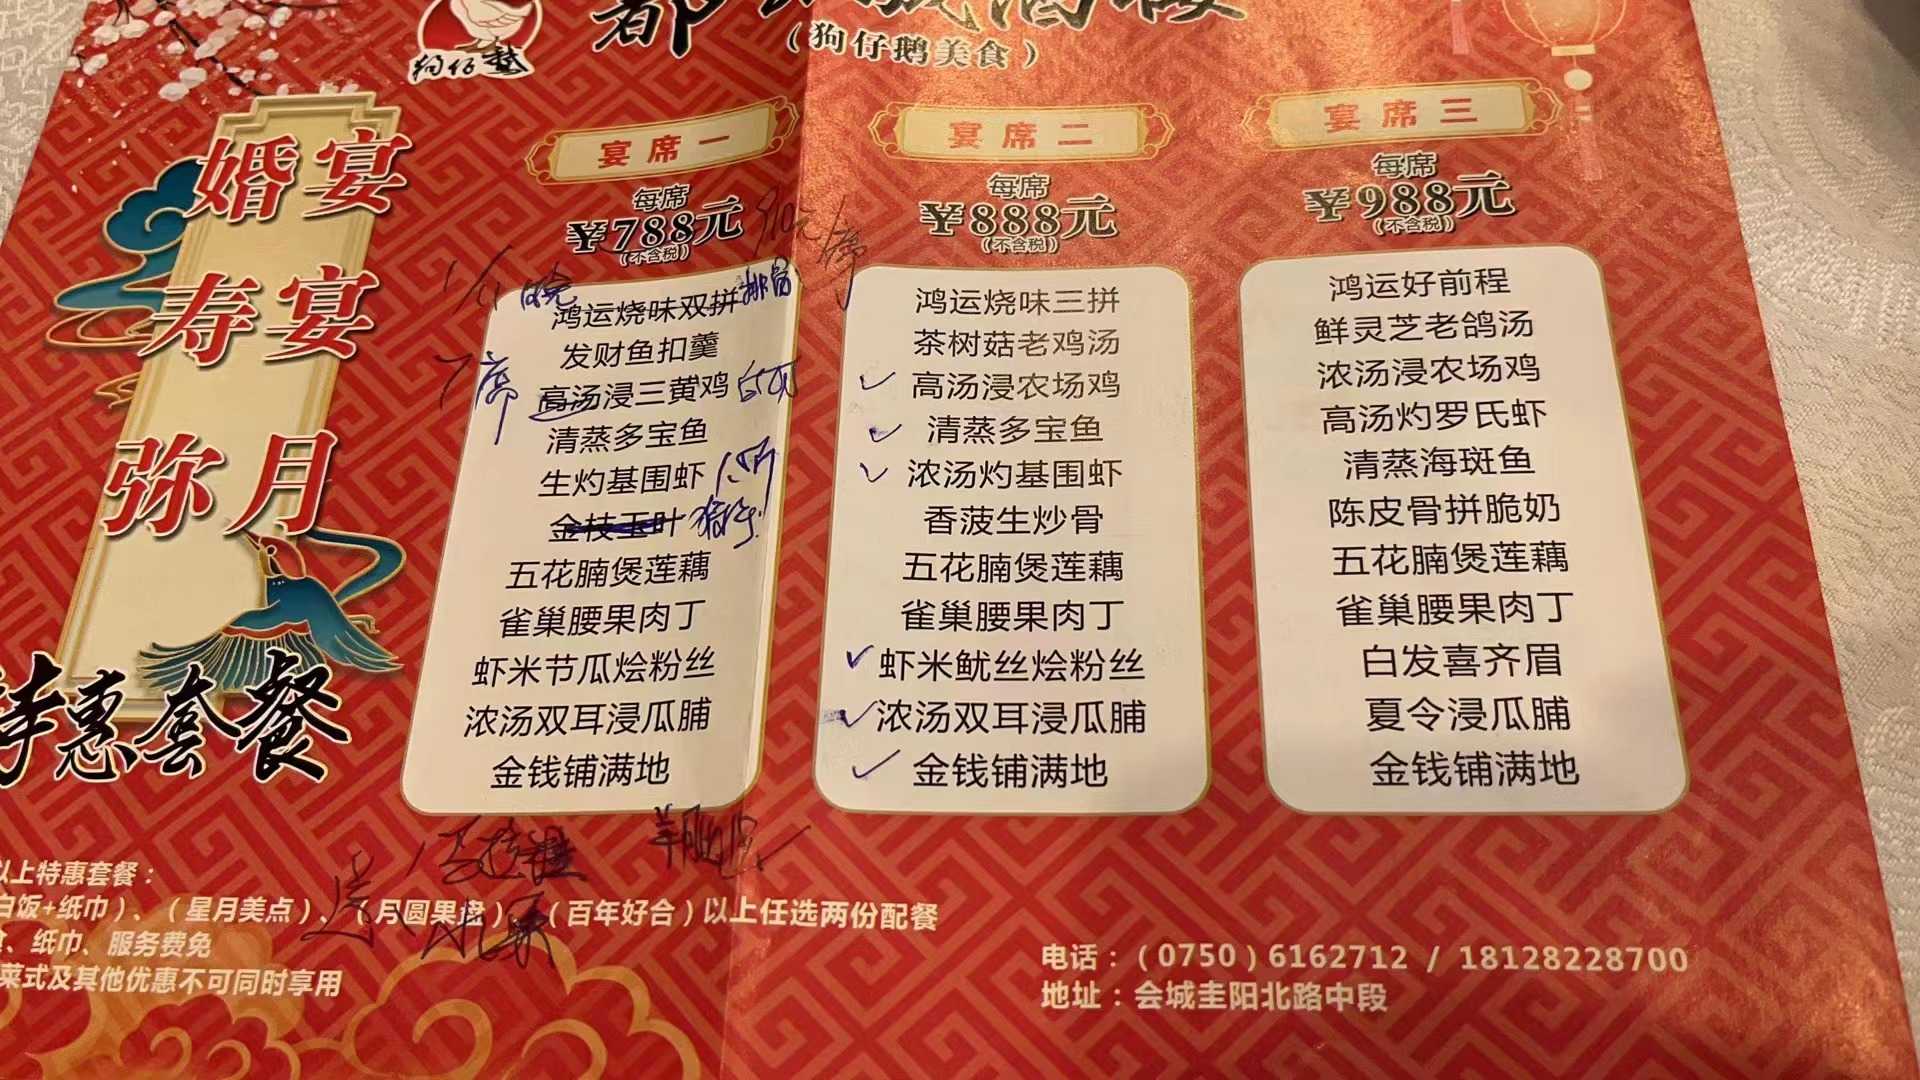 狗仔鹅
(狗仔鹅美食)
婚宴
寿宴
弥月
特惠套餐
宴席一
每席
¥788元
(不含税)
鸿运烧味双拼 排骨
发财鱼扣羹
7席
高汤浸三黄鸡
清蒸多宝鱼
生灼基围虾
金枝玉叶
五花腩煲莲藕
雀巢腰果肉丁
虾米节瓜烩粉丝
浓汤双耳浸瓜脯
金钱铺满地
宴席二
每席
¥888元
(不含税)
鸿运烧味三拼
茶树菇老鸡汤
✓ 高汤浸农场鸡
✓ 清蒸多宝鱼
✓ 浓汤灼基围虾
香菠生炒骨
五花腩煲莲藕
雀巢腰果肉丁
✓ 虾米鱿丝烩粉丝
✓ 浓汤双耳浸瓜脯
✓ 金钱铺满地
宴席三
每席
¥988元
(不含税)
鸿运好前程
鲜灵芝老鸽汤
浓汤浸农场鸡
高汤灼罗氏虾
清蒸海斑鱼
陈皮骨拼脆奶
五花腩煲莲藕
雀巢腰果肉丁
白发喜齐眉
夏令浸瓜脯
金钱铺满地
以上特惠套餐：
白饭+纸巾）、（星月美点）、（月圆果盘）、（百年好合）以上任选两份配餐
、纸巾、服务费免
菜式及其他优惠不可同时享用
送
电话：（0750）6162712 / 18128228700
地址：会城圭阳北路中段